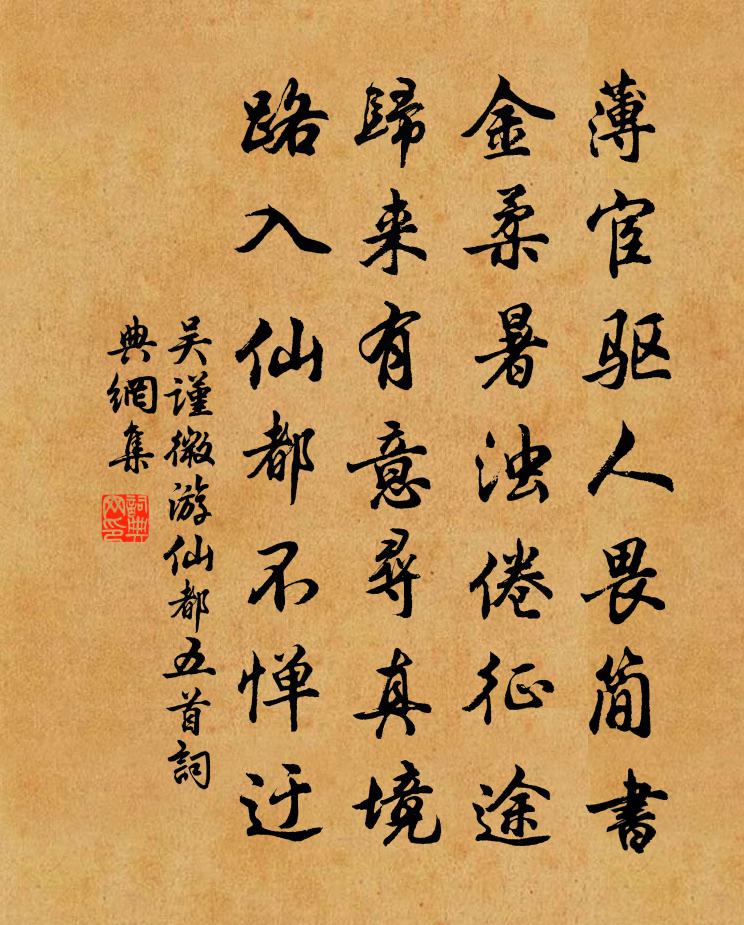 薄宦驱人畏简書
金柔暑浊倦征途
歸来有意尋真境
路入仙都不惮迂
吴谨微游仙都五首詞
典網集
詞典
网印